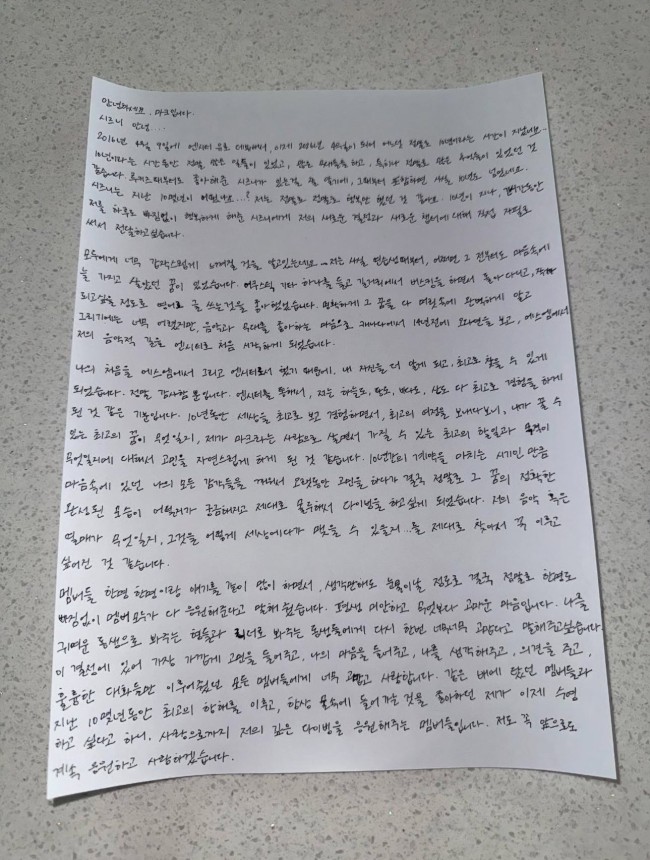 안녕하세요. 마크입니다.
시즈니 안녕...
2016년 4월 9일에 엔시티 유로 데뷔해서, 이제 2026년 4월이 되어 어느덧 정말로 10년이라는 시간이 지났네요..
10년이라는 시간동안 정말 많은 일들이 있었고, 많은 무대들을 하고, 특히나 정말로 많은 추억들이 있었던 것
같습니다. 루키즈때부터도 좋아해준 시즈니가 있는걸 잘 알기에, 그때부터 포함하면 사실 10년도 넘었네요.
시즈니는 지난 10몇년이 어땠나요...? 저는 정말로 정말로 행복만 했던 것 같아요. 10년이 지나, 그동안
저를 하루도 빠짐없이 행복하게 해준 시즈니에게 저의 새로운 결정과 새로운 챕터에 대해 직접 자필로
써서 전달하고싶습니다.
모두에게 너무 갑작스럽게 느껴질 것을 알고있는데요.. 저는 사실 연습생때부터, 어쩌면 그 전부터도 마음속에
늘 가지고 살았던 꿈이 있었습니다. 어쿠스틱 기타 하나를 들고 길거리에서 버스킹을 하면서 돌아다니고, 작가
되고싶을 정도로 영어로 글 쓰는것을 좋아했었습니다. 명확하게 그 꿈을 다 머릿속에 완벽하게 알고
그리기에는 너무 어렸지만, 음악과 무대를 좋아하는 마음으로 캐나다에서 14년전에 오디션을 보고, 에스엠에서
저의 음악적 길을 엔시티로 처음 시작하게 되었습니다.
나의 처음을 에스엠에서 그리고 엔시티로서 했기 때문에, 내 자신을 더 알게 되고, 최고로 찾을 수 있게
되었습니다. 정말 감사할 뿐입니다. 엔시티를 통해서, 저는 하늘도, 땅도, 바다도, 산도 다 최고로 경험을 하게
된 것 같은 기분입니다. 10년동안 세상을 최고로 보고 경험하면서, 최고의 여정을 보내다보니, 내가 꿀 수
있는 최고의 꿈이 무엇일지, 제가 마크라는 사람으로 살면서 가질 수 있는 최고의 할일과 목적이
무엇일지에 대해서 고민을 자연스럽게 하게 된 것 같습니다. 10년간의 계약을 마치는 시기인 만큼
마음속에 있던 나의 모든 감각들을 깨워서 오랫동안 고민을 하다가 결국 정말로 그 꿈의 정확한
완성된 모습이 어떨지가 궁금해지고 제대로 몰두해서 다이빙을 하고싶게 되었습니다. 저의 음악 혹은
열매가 무엇일지, 그것을 어떻게 세상에다가 맺을 수 있을지..를 제대로 찾아서 꼭 이루고
싶어진 것 같습니다.
멤버들 한명 한명이랑 얘기를 같이 많이 하면서, 생각만해도 눈물이날 정도로 결국 정말로 한명도
빠짐없이 멤버 모두가 다 응원해준다고 말해줬습니다. 평생 미안하고 무엇보다 고마운 마음입니다. 나를
귀여운 동생으로 봐주는 형들과 리더로 봐주는 동생들에게 다시 한번 너무너무 고맙다고 말해주고싶습니다.
이 결정에 있어 가장 가깝게 고민을 들어주고, 나의 마음을 들어주고, 나를 생각해주고, 의견을 주고,
훌륭한 대화들만 이루어줬던 모든 멤버들에게 너무 고맙고 사랑합니다. 같은 배에 탔던 멤버들과
지난 10몇년동안 최고의 항해를 이루고, 항상 물속에 들어가는 것을 좋아하던 제가 이제 수영
하고 싶다고 하니, 사랑으로까지 저의 깊은 다이빙을 응원해주는 멤버들입니다. 저도 꼭 앞으로도
계속 응원하고 사랑하겠습니다.